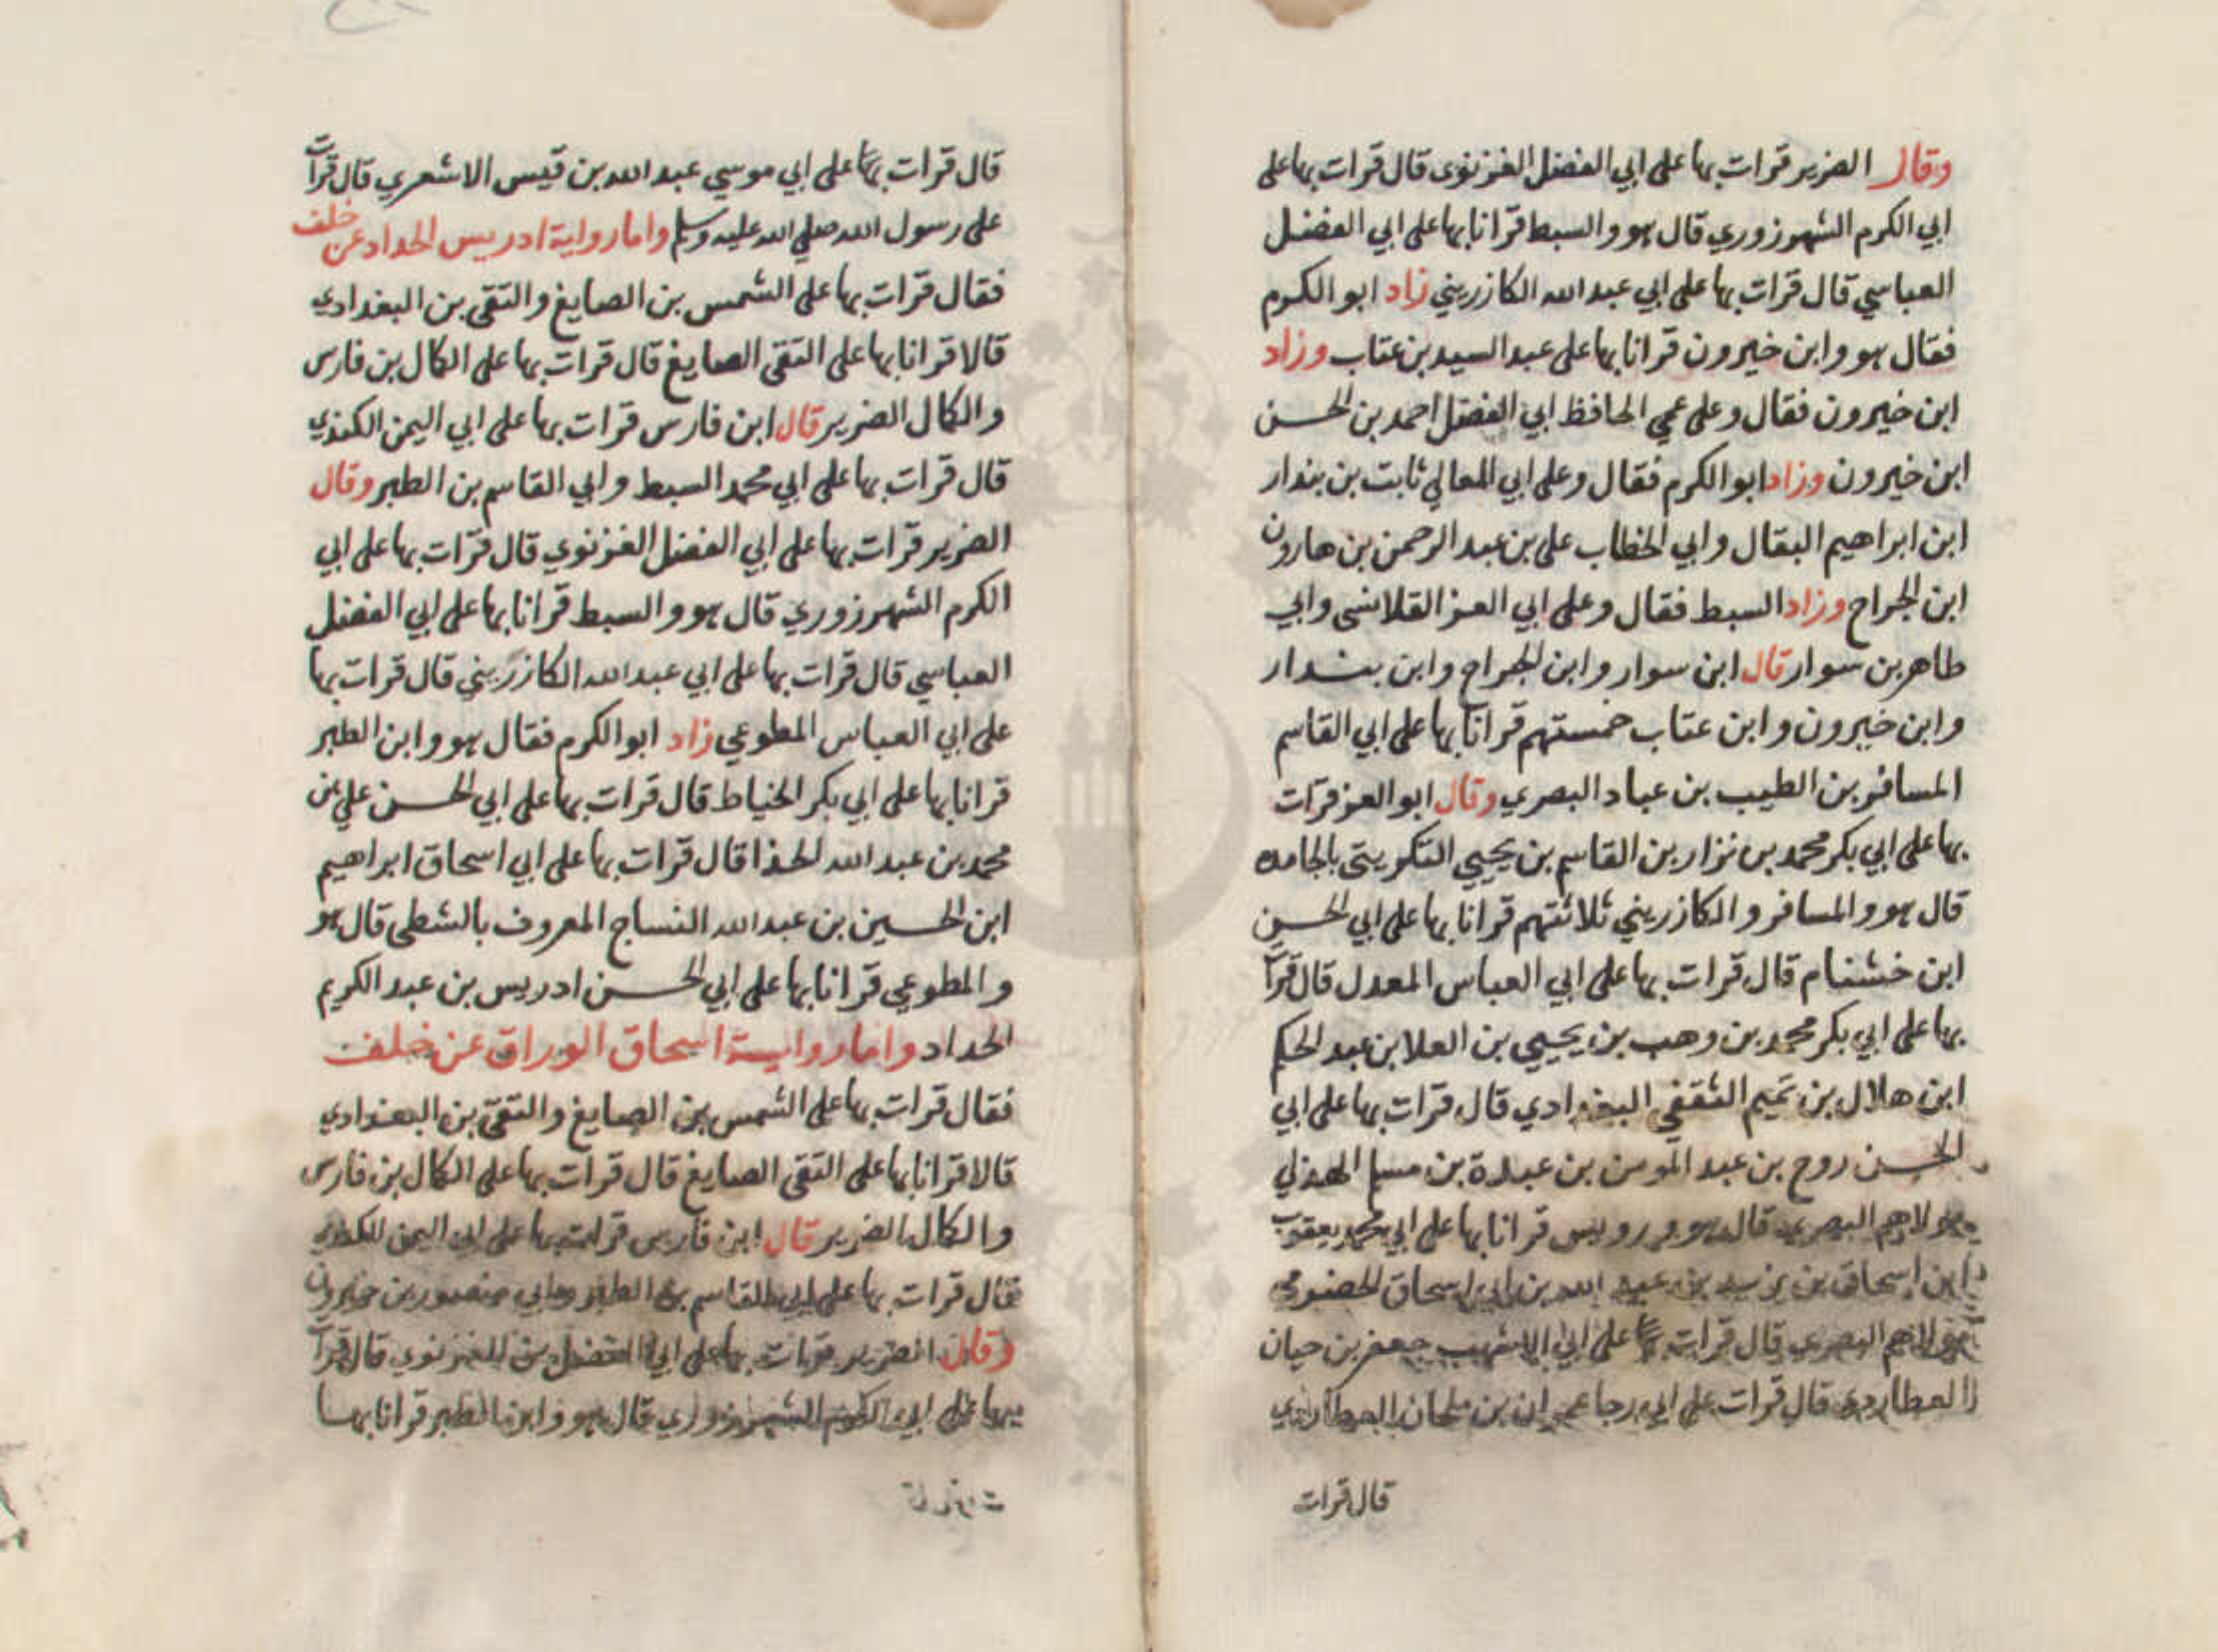 وقال الضرير قرات بها على ابي الفضل الغزنوى قال قرات بها على
ابي الكرم الشهرزوري قال هو والسبط قرانا بها على ابي الفضل
العباسي قال قرات بها على ابي عبد الله الكازريني زاد ابو الكرم
فقال هو وابن خيرون قرانا بها على عبد السيد بن عتاب وزاد
ابن خيرون فقال وعلى عمي الحافظ ابي الفضل احمد بن الحسن
ابن خيرون وزاد ابو الكرم فقال وعلى ابي المعالي ثابت بن بندار
ابن ابراهيم البقال وابي الخطاب على بن عبد الرحمن بن هارون
ابن الجراح وزاد السبط فقال وعلى ابي العز القلانسى وابي
طاهر بن سوار قال ابن سوار وابن الجراح وابن بندار
وابن خيرون وابن عتاب خمستهم قرانا بها على ابي القاسم
المسافر بن الطيب بن عباد البصري وقال ابو العز قرات
بها على ابي بكر محمد بن نزار بن القاسم بن يحيي التكريتى بالجامده
قال هو والمسافر والكازريني ثلاثتهم قرانا بها على ابي الحسن
ابن خشنام قال قرات بها على ابي العباس المعدل قال قرات
بها على ابي بكر محمد بن وهب بن يحيي بن العلا بن عبد الحكم
ابن هلال بن تميم الثقفي البغدادي قال قرات بها على ابي
الحسن روح بن عبد المومن بن عبدة بن مسلم الهذلي
مولاهم البصري قال هو ورويس قرانا بها على ابي محمد يعقوب
ابن اسحاق بن زيد بن عبد الله بن ابي اسحاق الحضرمي
مولاهم البصري قال قرات بها على ابي الاشهب جعفر بن حيان
العطاردي قال قرات على ابي رجا عمران بن ملحان العطاردي
قال قرات
قال قرات بها على ابي موسي عبد الله بن قيس الاشعري قال قرات
على رسول الله صلي الله عليه وسلم واما رواية ادريس الحداد عن خلف
فقال قرات بها على الشمس بن الصايغ والتقى بن البغدادي
قالا قرانا بها على التقى الصايغ قال قرات بها على الكمال بن فارس
والكمال الضرير قال ابن فارس قرات بها على ابي اليمن الكندي
قال قرات بها على ابي محمد السبط وابي القاسم بن الطبر وقال
الضرير قرات بها على ابي الفضل الغزنوي قال قرات بها على ابي
الكرم الشهرزوري قال هو والسبط قرانا بها على ابي الفضل
العباسي قال قرات بها على ابي عبد الله الكازريني قال قرات بها
على ابي العباس المطوعي زاد ابو الكرم فقال هو وابن الطبر
قرانا بها على ابي بكر الخياط قال قرات بها على ابي الحسن علي بن
محمد بن عبد الله الحذا قال قرات بها على ابي اسحاق ابراهيم
ابن الحسين بن عبد الله النساج المعروف بالشطى قال هو
والمطوعي قرانا بها على ابي الحسن ادريس بن عبد الكريم
الحداد واما رواية اسحاق الوراق عن خلف
فقال قرات بها على الشمس بن الصايغ والتقى بن البغدادي
قالا قرانا بها على التقى الصايغ قال قرات بها على الكمال بن فارس
والكمال الضرير قال ابن فارس قرات بها على ابي اليمن الكندي
فقال قرات بها على ابي القاسم بن الطبر وابي منصور بن خيرون
وقال الضرير قرات بها على ابي الفضل الغزنوي قال قرات
بها على ابي الكرم الشهرزوري قال هو وابن الطبر قرانا بها